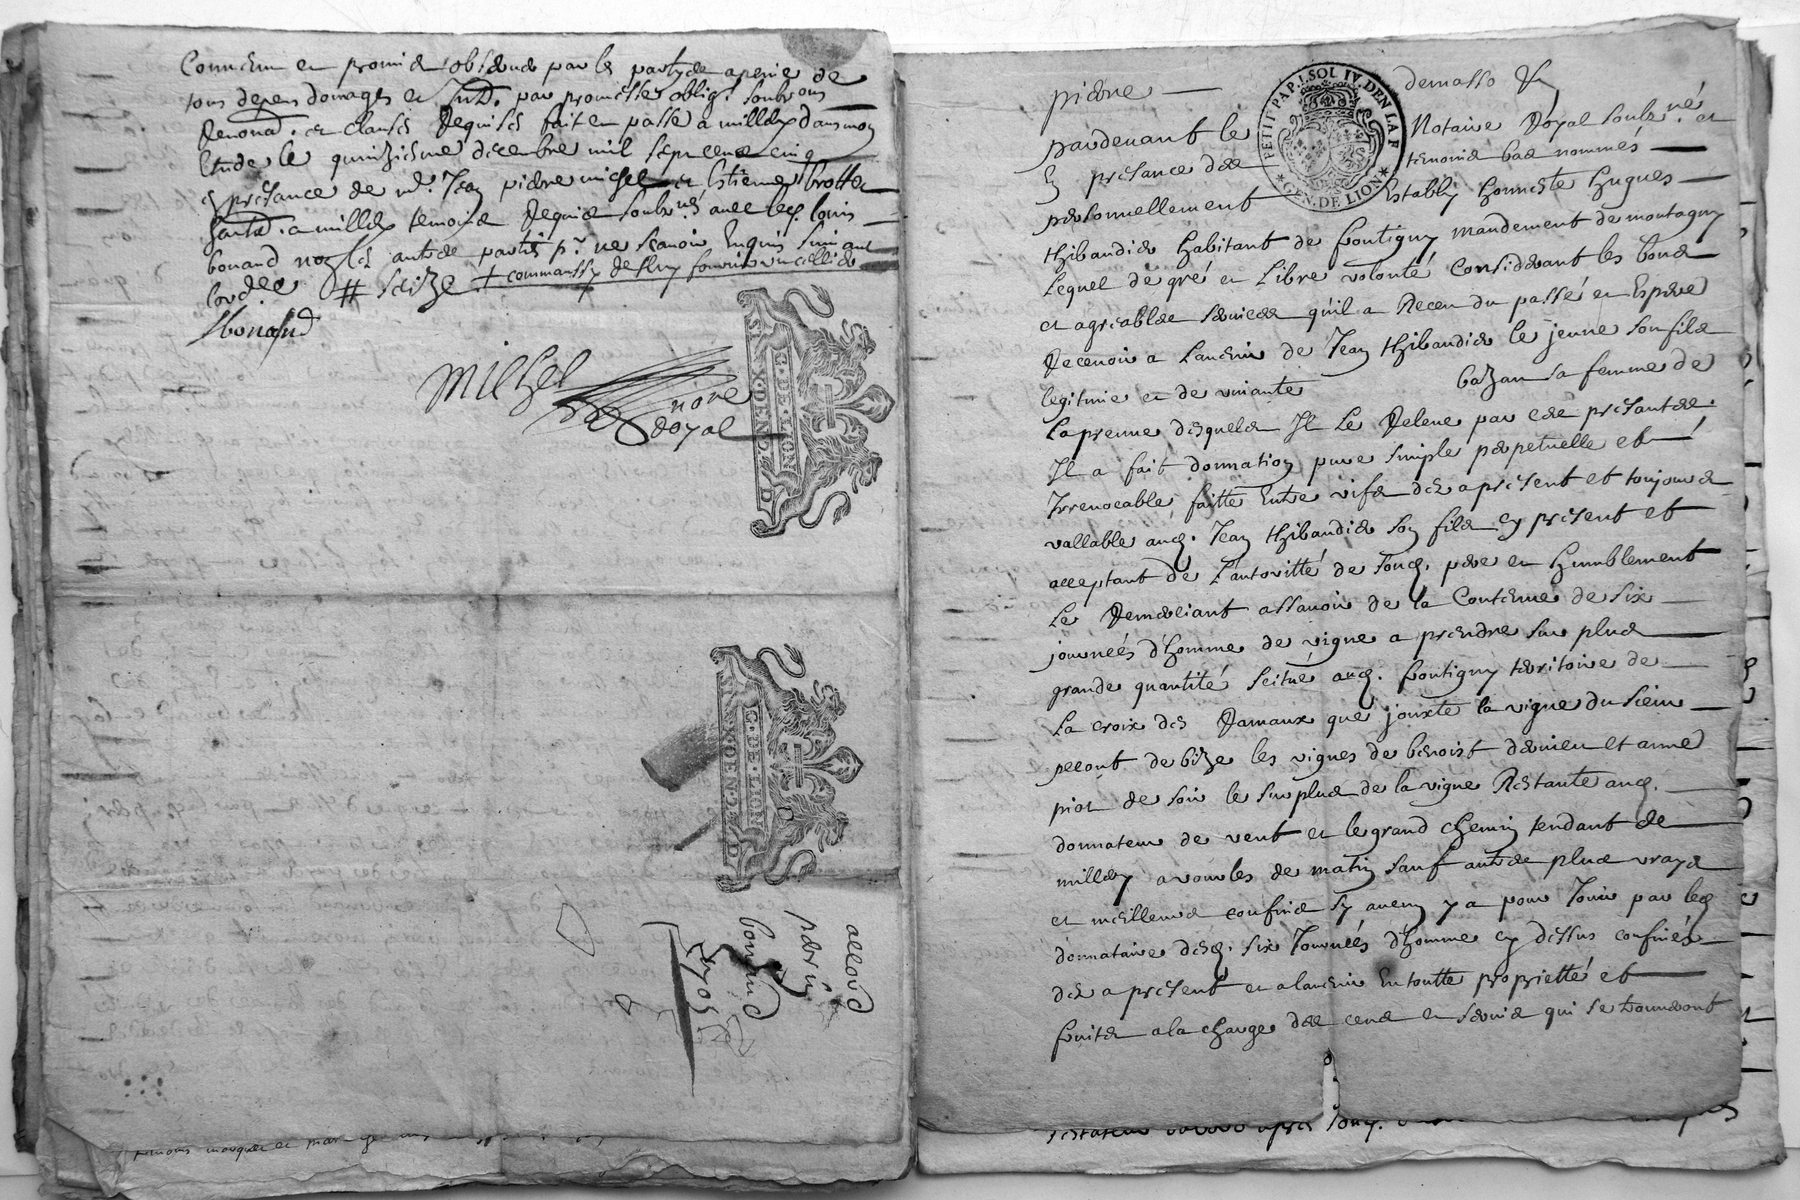 Convenu et promis observer par les partyes a penne de
tous depens domages et Intd. par promesses oblig. soubmons
Renond. et clauses Requises fait et passé a millery dans mon
Etude le quinzieme decembre mil sept cens cinq
En presance de md. Jean pierre michel et Estienne brottet
hartd. a millery temoins Requis soubnés avec led. louis
bonand non les autres parties pr. ne scavoir Enquis suivant
lordce # seize
Sbonand
michel
nore
Royal
S.SX.DEN.G.D
G.DE.LION
S.SX.DEN.G.D
G.DE.LION
bonand
pierre demasso
PETIT.PAP.I.SOL IV.DEN.LA.F
GEN.DE LION
pardevant le Notaire Royal soubsné. et
En presance des temoins bas nommés
personnellement Estably honneste hugues
thibaudier habitant de frontigny mandement de montagny
Lequel de gré et Libre volonté Considerant les bons
et agreables services qu'il a Receu du passé et Espere
Recevoir a Lavenir de Jean thibaudier le jeune son fils
legitime et de vivante bazan sa femme de
la preuve desquels Il Le Releve par ces presantes
Il a fait donnation pure simple perpetuelle et
Irrevocable faitte Entre vifs des a present et toujours
vallable aud. Jean thibaudier son fils cy present et
acceptant de L'autoritté de sond. pere et humblement
Le Remerciant assavoir de la Contenue de six
journées d'homme de vigne a prendre sur plus
grande quantité scitué aud. frontigny territoire de
La croix des Rameaux que jouxte la vigne du sieur
pecout de bize les vignes de benoist dernieu et anne
piot de soir le surplus de la vigne Restante aud.
donnateur de vent et le grand chemin tendant de
millery a vourles de matin sauf autres plus vrays
et meilleurs confins sy aucun y a pour Jouir par led.
donnataire desd. six Journées d'homme cy dessus confinés
des a present et a lavenir En toutte proprietté et
fruits a la charge des cens et servis qui se trouveront